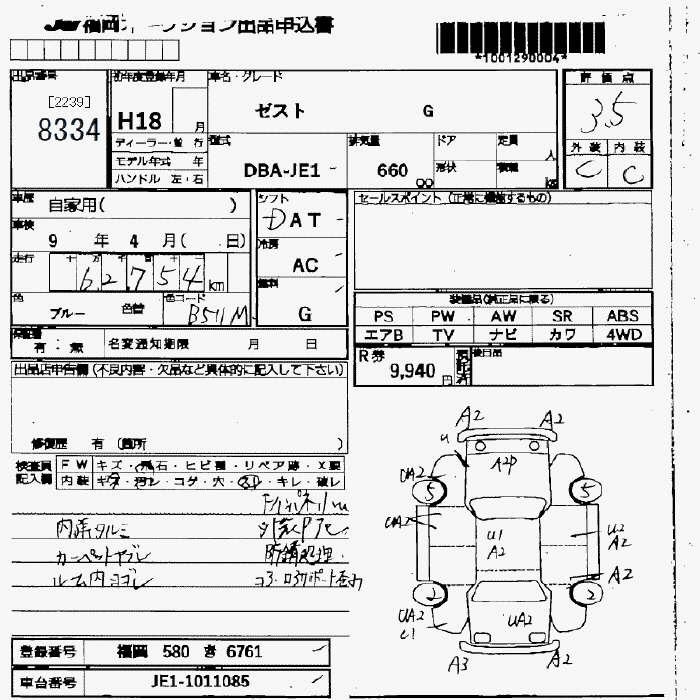 福岡オークション出品申込書
*1001290004*
出品番号
[2239]
8334
初年度登録年月
H18 月
ディーラー・並行
モデル年式 年
ハンドル 左・右
車名・グレード
ゼスト G
型式
DBA-JE1
排気量
660
ドア
形状
定員
人
積載
kg
評価点
3.5
外装 内装
C C
車歴
自家用( )
車検
9 年 4 月( 日)
走行
十 万 千 百 十 一
62754 km
色
ブルー
色替
色コード
B511M
シフト
DAT
冷房
AC
燃料
G
セールスポイント (正常に機能するもの)
装備品(純正品に限る)
PS PW AW SR ABS
エアB TV ナビ カワ 4WD
保証書
有 : 無
名変通知期限 月 日
R券
9,940 円
後日品
出品店申告欄 (不良内容・欠品など具体的に記入して下さい)
修復歴 有 (箇所 )
検査員
記入欄
FW キズ・飛石・ヒビ種・リペア跡・X要
内装 キズ・汚レ・コゲ・穴・スレ・キレ・破レ
内張タルミ
カーペットヤブレ 防錆処理
ルーム内ヨゴレ
A2 A2
u
A2P
UA2
5 5
UA2
U1
A2
U2
A2
A2
2 2
UA2
U1
UA2
A3 A2
登録番号 福岡 580 き 6761
車台番号 JE1-1011085